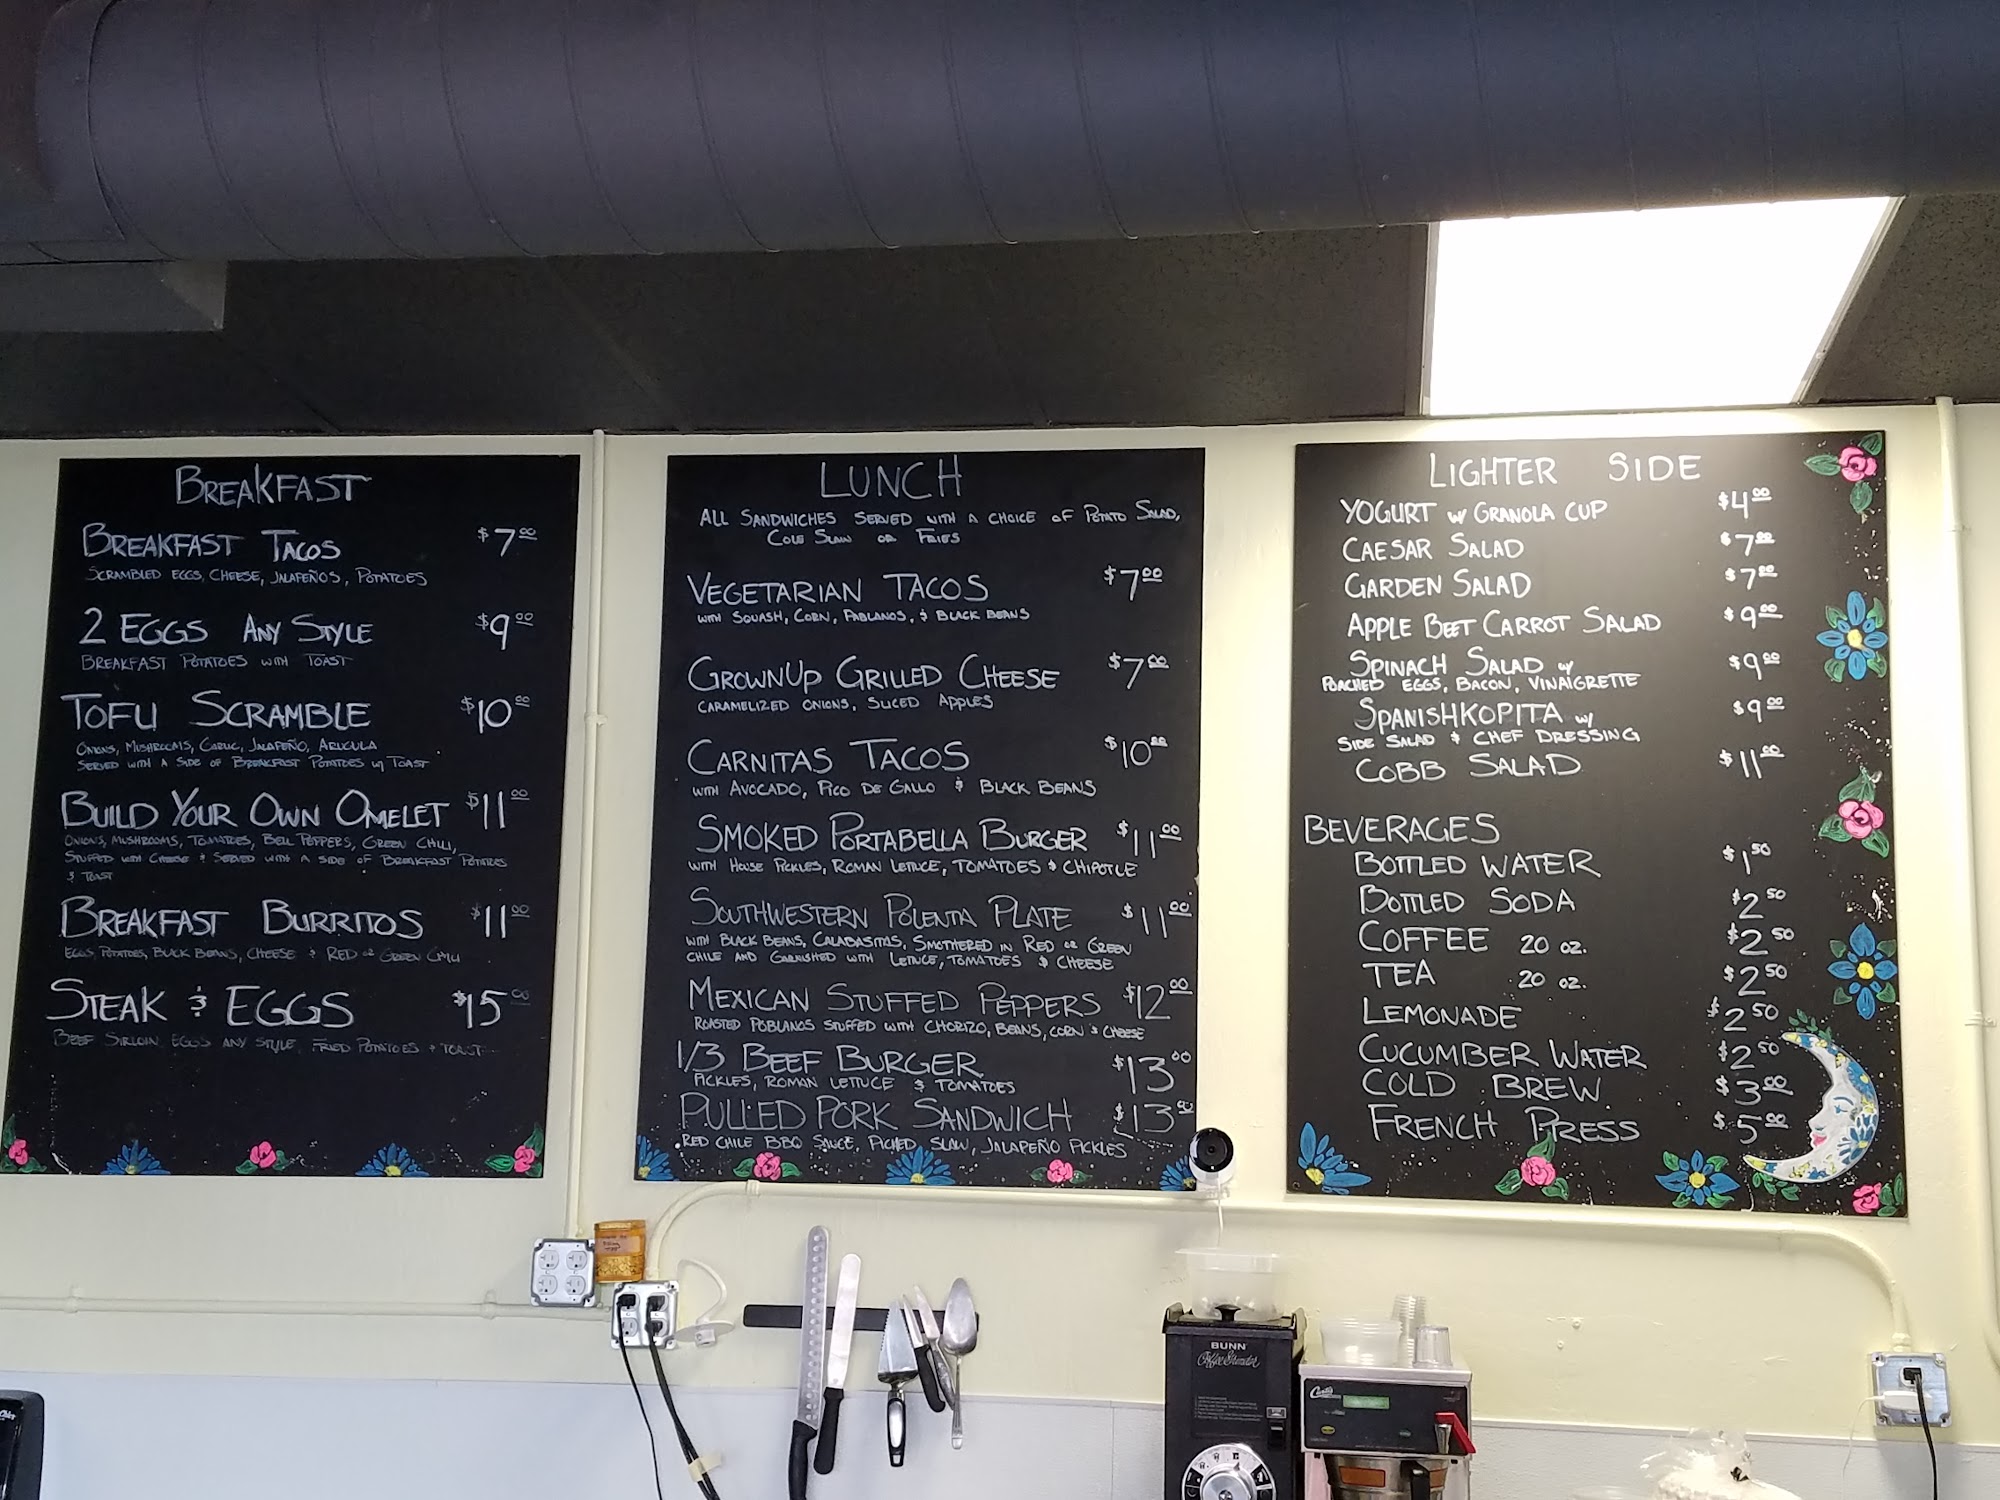 BREAKFAST
BREAKFAST TACOS $7.00
SCRAMBLED EGGS, CHEESE, JALAPEÑOS, POTATOES
2 EGGS ANY STYLE $9.00
BREAKFAST POTATOES WITH TOAST
TOFU SCRAMBLE $10.00
ONIONS, MUSHROOMS, GARLIC, JALAPEÑO, ARUGULA
SERVED WITH A SIDE OF BREAKFAST POTATOES W/ TOAST
BUILD YOUR OWN OMELET $11.00
ONIONS, MUSHROOMS, TOMATOES, BELL PEPPERS, GREEN CHILI,
STUFFED WITH CHEESE & SERVED WITH A SIDE OF BREAKFAST POTATOES
& TOAST
BREAKFAST BURRITOS $11.00
EGGS, POTATOES, BLACK BEANS, CHEESE & RED OR GREEN CHILI
STEAK & EGGS $15.00
BEEF SIRLOIN, EGGS ANY STYLE, FRIED POTATOES & TOAST
LUNCH
ALL SANDWICHES SERVED WITH A CHOICE OF POTATO SALAD,
COLE SLAW OR FRIES
VEGETARIAN TACOS $7.00
WITH SQUASH, CORN, PABLANOS, & BLACK BEANS
GROWNUP GRILLED CHEESE $7.00
CARAMELIZED ONIONS, SLICED APPLES
CARNITAS TACOS $10.00
WITH AVOCADO, PICO DE GALLO & BLACK BEANS
SMOKED PORTABELLA BURGER $11.00
WITH HOUSE PICKLES, ROMAN LETTUCE, TOMATOES & CHIPOTLE
SOUTHWESTERN POLENTA PLATE $11.00
WITH BLACK BEANS, CALABASITAS, SMOTHERED IN RED OR GREEN
CHILE AND GARNISHED WITH LETTUCE, TOMATOES & CHEESE
MEXICAN STUFFED PEPPERS $12.00
ROASTED POBLANOS STUFFED WITH CHORIZO, BEANS, CORN & CHEESE
1/3 BEEF BURGER $13.00
PICKLES, ROMAN LETTUCE & TOMATOES
PULLED PORK SANDWICH $13.00
RED CHILE BBQ SAUCE, PICKED SLAW, JALAPEÑO PICKLES
LIGHTER SIDE
YOGURT W/ GRANOLA CUP $4.00
CAESAR SALAD $7.00
GARDEN SALAD $7.00
APPLE BEET CARROT SALAD $9.00
SPINACH SALAD W/ $9.00
POACHED EGGS, BACON, VINAIGRETTE
SPANISHKOPITA W/ $9.00
SIDE SALAD & CHEF DRESSING
COBB SALAD $11.00
BEVERAGES
BOTTLED WATER $1.50
BOTTLED SODA $2.50
COFFEE 20 OZ. $2.50
TEA 20 OZ. $2.50
LEMONADE $2.50
CUCUMBER WATER $2.50
COLD BREW $3.00
FRENCH PRESS $5.00
BUNN
Coffee Grinder
Curtis